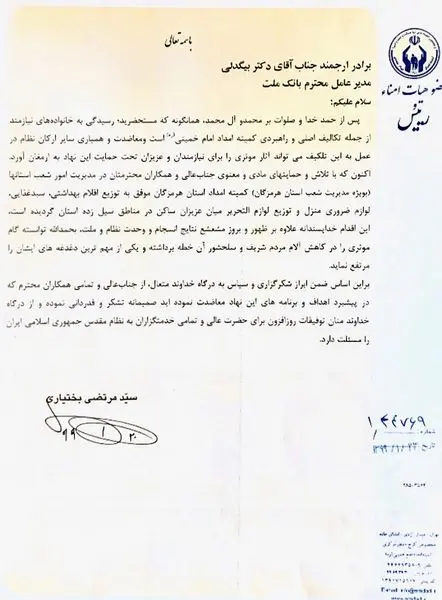 باسمه تعالی
عضو هیات امناء
رئیس
برادر ارجمند جناب آقای دکتر بیگدلی
مدیر عامل محترم بانک ملت
سلام علیکم؛
پس از حمد خدا و صلوات بر محمدو آل محمد، همانگونه که مستحضرید؛ رسیدگی به خانواده‌های نیازمند
از جمله تکالیف اصلی و راهبردی کمیته امداد امام خمینی(ره) است ومعاضدت و همیاری سایر ارکان نظام در
عمل به این تکلیف می تواند آثار موثری را برای نیازمندان و عزیزان تحت حمایت این نهاد به ارمغان آورد.
اکنون که با تلاش و حمایتهای مادی و معنوی جناب‌عالی و همکاران محترمتان در مدیریت امور شعب استانها
(بویژه مدیریت شعب استان هرمزگان) کمیته امداد استان هرمزگان موفق به توزیع اقلام بهداشتی، سبدغذایی،
لوازم ضروری منزل و توزیع لوازم التحریر میان عزیزان ساکن در مناطق سیل زده استان گردیده است،
این اقدام خداپسندانه علاوه بر ظهور و بروز مشعشع نتایج انسجام و وحدت نظام و ملت، بحمدالله توانسته گام
موثری را در کاهش آلام مردم شریف و سلحشور آن خطه برداشته و یکی از مهم ترین دغدغه های ایشان را
مرتفع نماید.
براین اساس ضمن ابراز شکرگزاری و سپاس به درگاه خداوند متعال، از جناب‌عالی و تمامی همکاران محترم که
در پیشبرد اهداف و برنامه های این نهاد معاضدت نموده اید صمیمانه تشکر و قدردانی نموده و از درگاه
خداوند منان توفیقات روزافزون برای حضرت عالی و تمامی خدمتگزاران به نظام مقدس جمهوری اسلامی ایران
را مسئلت دارد.
سیّد مرتضی بختیاری
۹۹ ۱ ۲۰
شماره:
تاریخ: